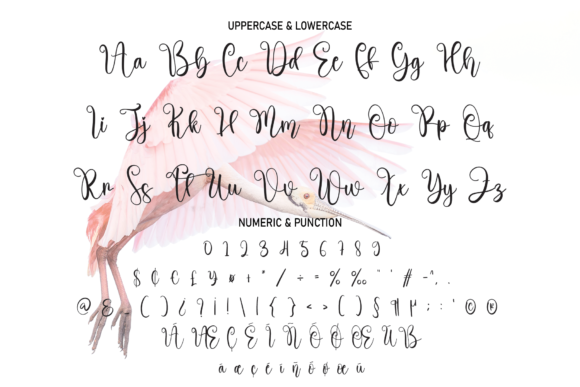 UPPERCASE & LOWERCASE
Aa Bb Cc Dd Ee Ff Gg Hh
Ii Jj Kk Ll Mm Nn Oo Pp Qq
Rr Ss Tt Uu Vv Ww Xx Yy Zz
NUMERIC & PUNCTION
0 1 2 3 4 5 6 7 8 9
$ ¢ € £ ¥ ¤ + * / ÷ = % ‰ " ' # ~ ^ . .
@ & - ( ) ¿ ? ¡ ! \ | { } < > ( ) § ¶ ; : ' © ®
Ä Æ Ç É Ï Ñ Ö Ø Œ Ü ß
ä æ ç é ï ñ ő ø œ ü